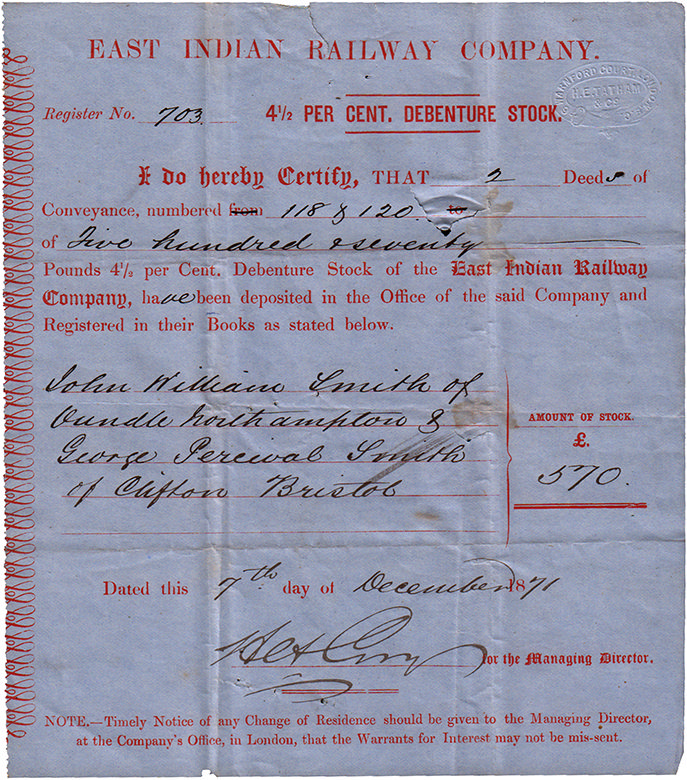 EAST INDIAN RAILWAY COMPANY.
H.E. TATHAM
& Co
Register No. 703. 4½ PER CENT. DEBENTURE STOCK.
I do hereby Certify, THAT 2 Deeds of
Conveyance, numbered from 118 & 120 to
of Five hundred & seventy
Pounds 4½ per Cent. Debenture Stock of the East Indian Railway
Company, have been deposited in the Office of the said Company and
Registered in their Books as stated below.
John William Smith of
Oundle Northampton &
George Percival Smith
of Clifton Bristol
AMOUNT OF STOCK.
£.
570.
Dated this 7th day of December 1871
for the Managing Director.
NOTE.—Timely Notice of any Change of Residence should be given to the Managing Director,
at the Company's Office, in London, that the Warrants for Interest may not be mis-sent.